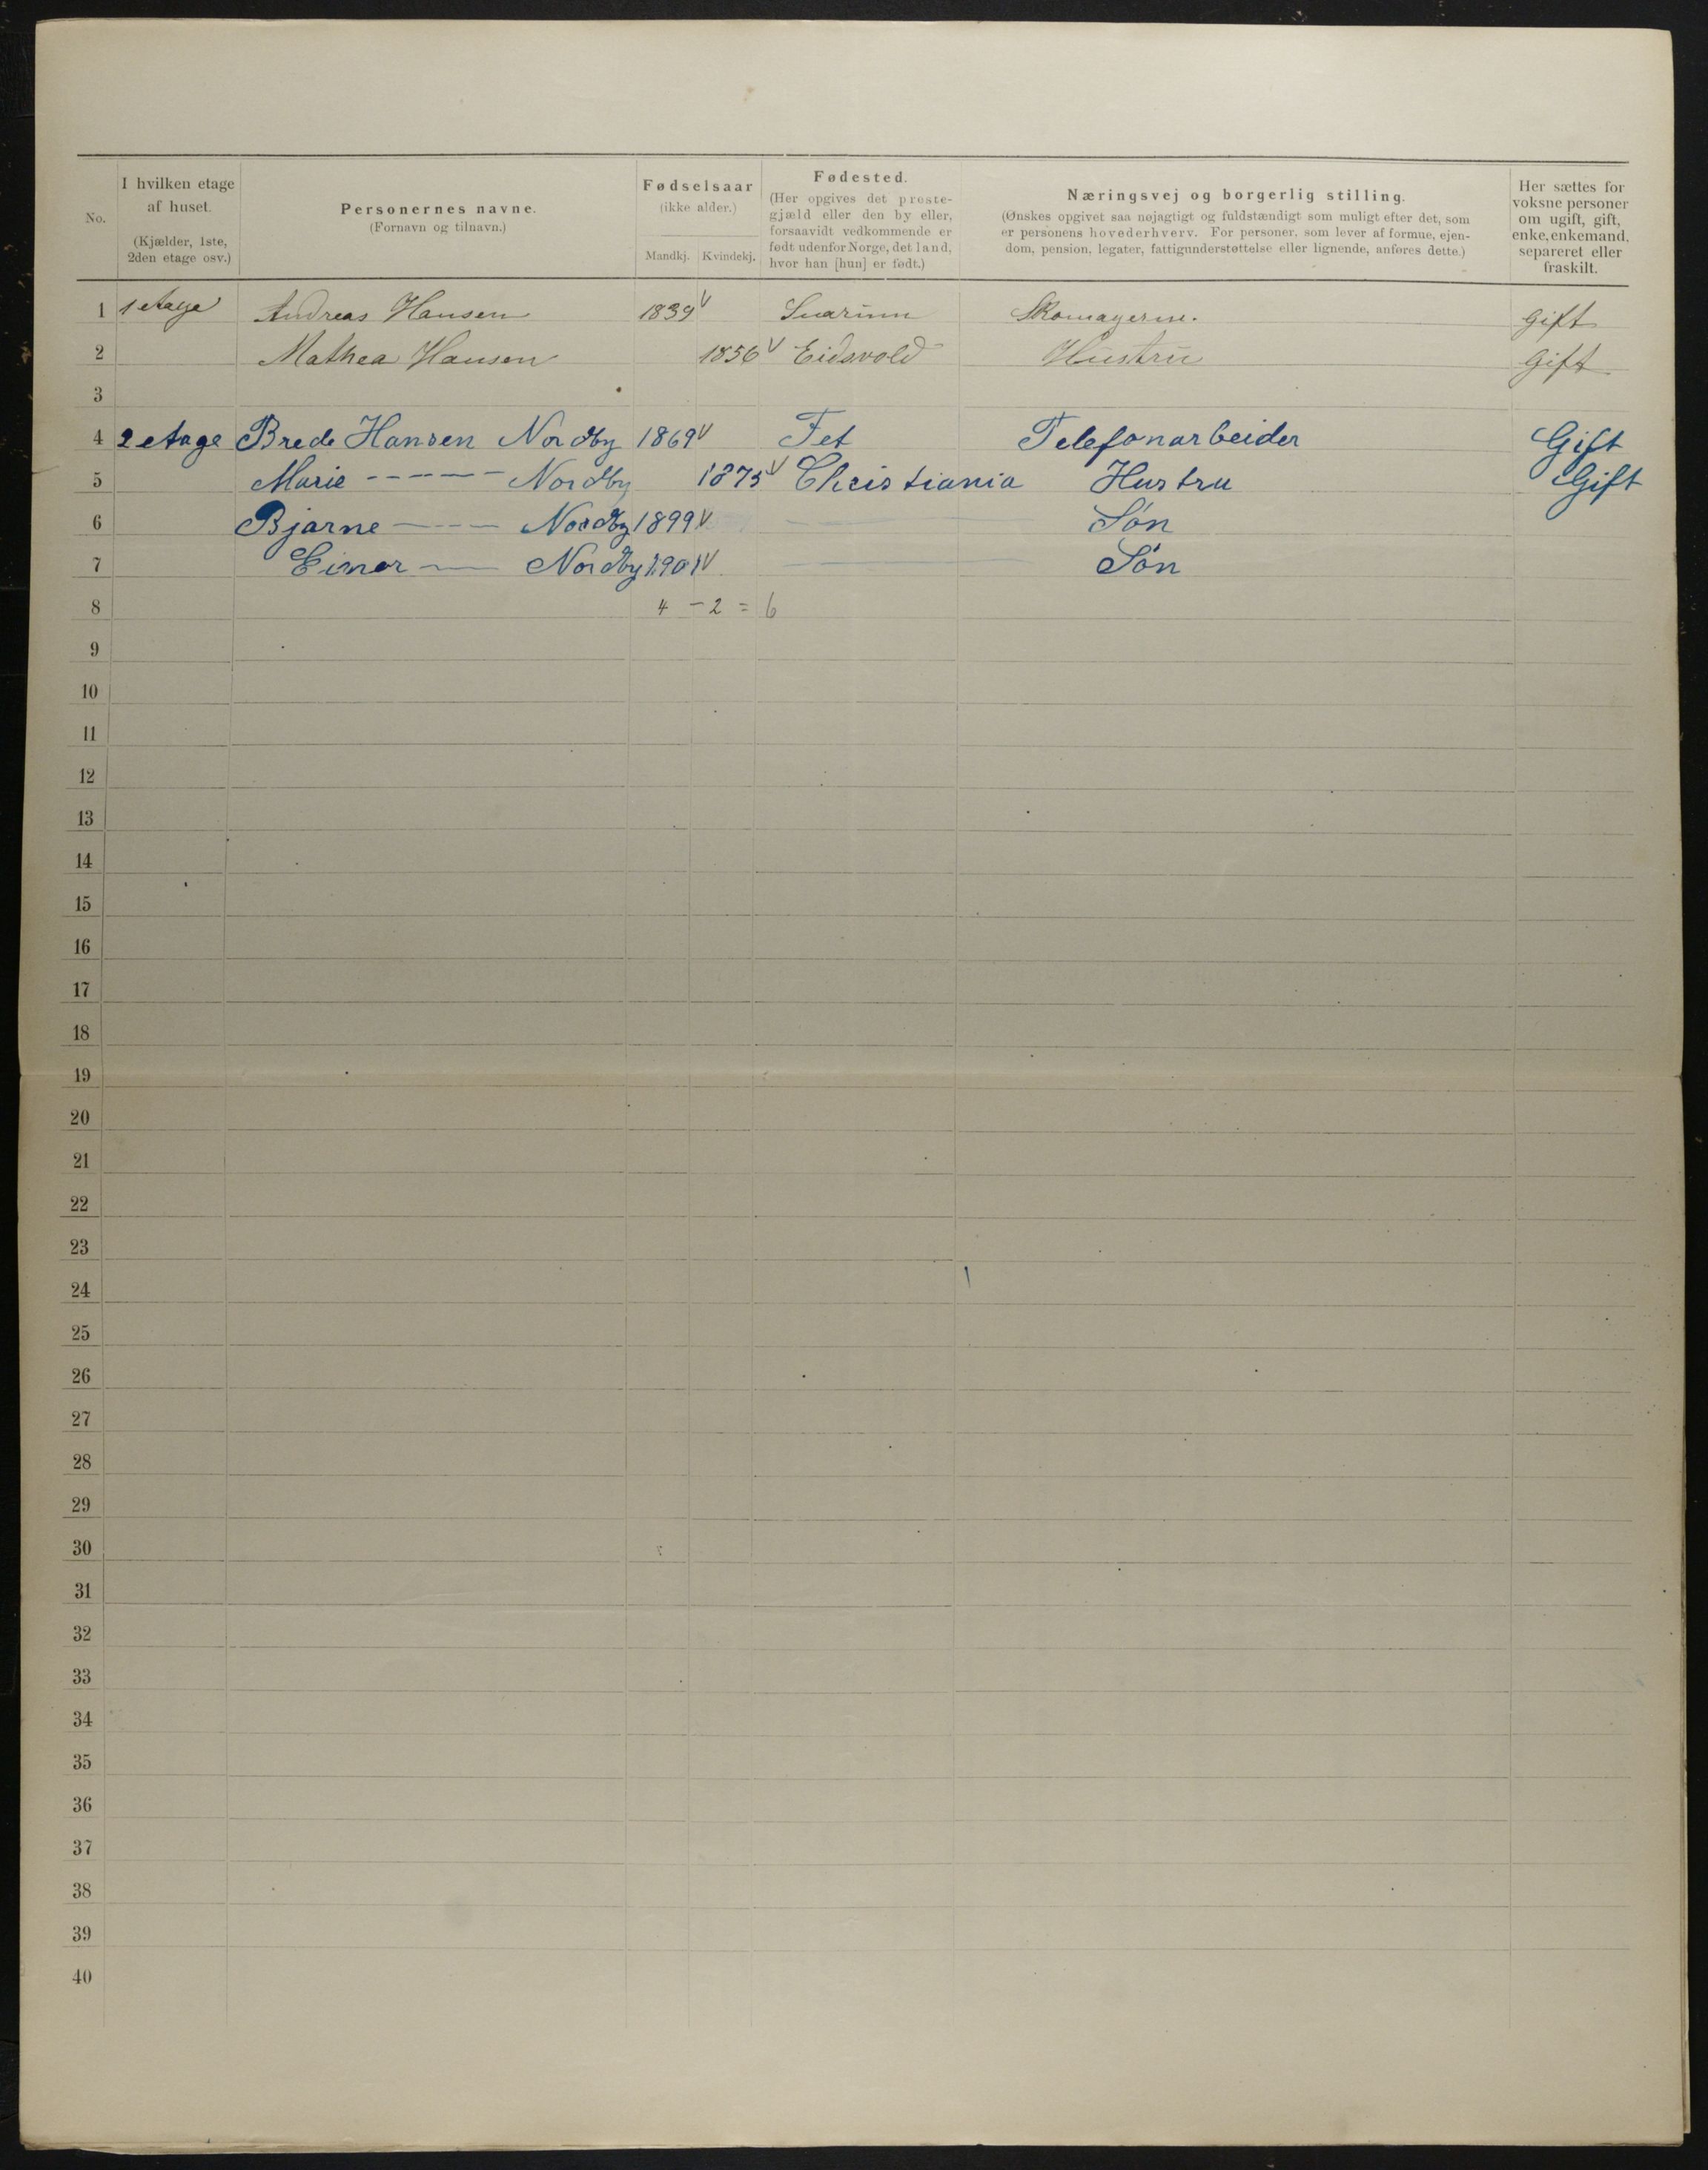 No.
I hvilken etage af huset.
(Kjælder, 1ste, 2den etage osv.)
Personernes navne.
(Fornavn og tilnavn.)
Fødselsaar
(ikke alder.)
Mandkj. Kvindekj.
Fødested.
(Her opgives det præstegjæld eller den by eller, forsaavidt vedkommende er født udenfor Norge, det land, hvor han [hun] er født.)
Næringsvej og borgerlig stilling.
(Ønskes opgivet saa nøjagtigt og fuldstændigt som muligt efter det, som er personens hovederhverv. For personer, som lever af formue, ejendom, pension, legater, fattigunderstøttelse eller lignende, anføres dette.)
Her sættes for voksne personer om ugift, gift, enke, enkemand, separeret eller fraskilt.
1 1 etage Andreas Hansen 1839 V Gift
2 Mathea Hansen 1856 V Eidsvold Hustru Gift
3
4 2 etage Brede Hansen Nordby 1869 V Fet Telefonarbeider Gift
5 Marie ----- Nordby 1875 V Christiania Hustru Gift
6 Bjarne --- Nordby 1899 V — Søn
7 Einar — Nordby 1901 V — Søn
8 4 - 2 = 6
9
10
11
12
13
14
15
16
17
18
19
20
21
22
23
24
25
26
27
28
29
30
31
32
33
34
35
36
37
38
39
40